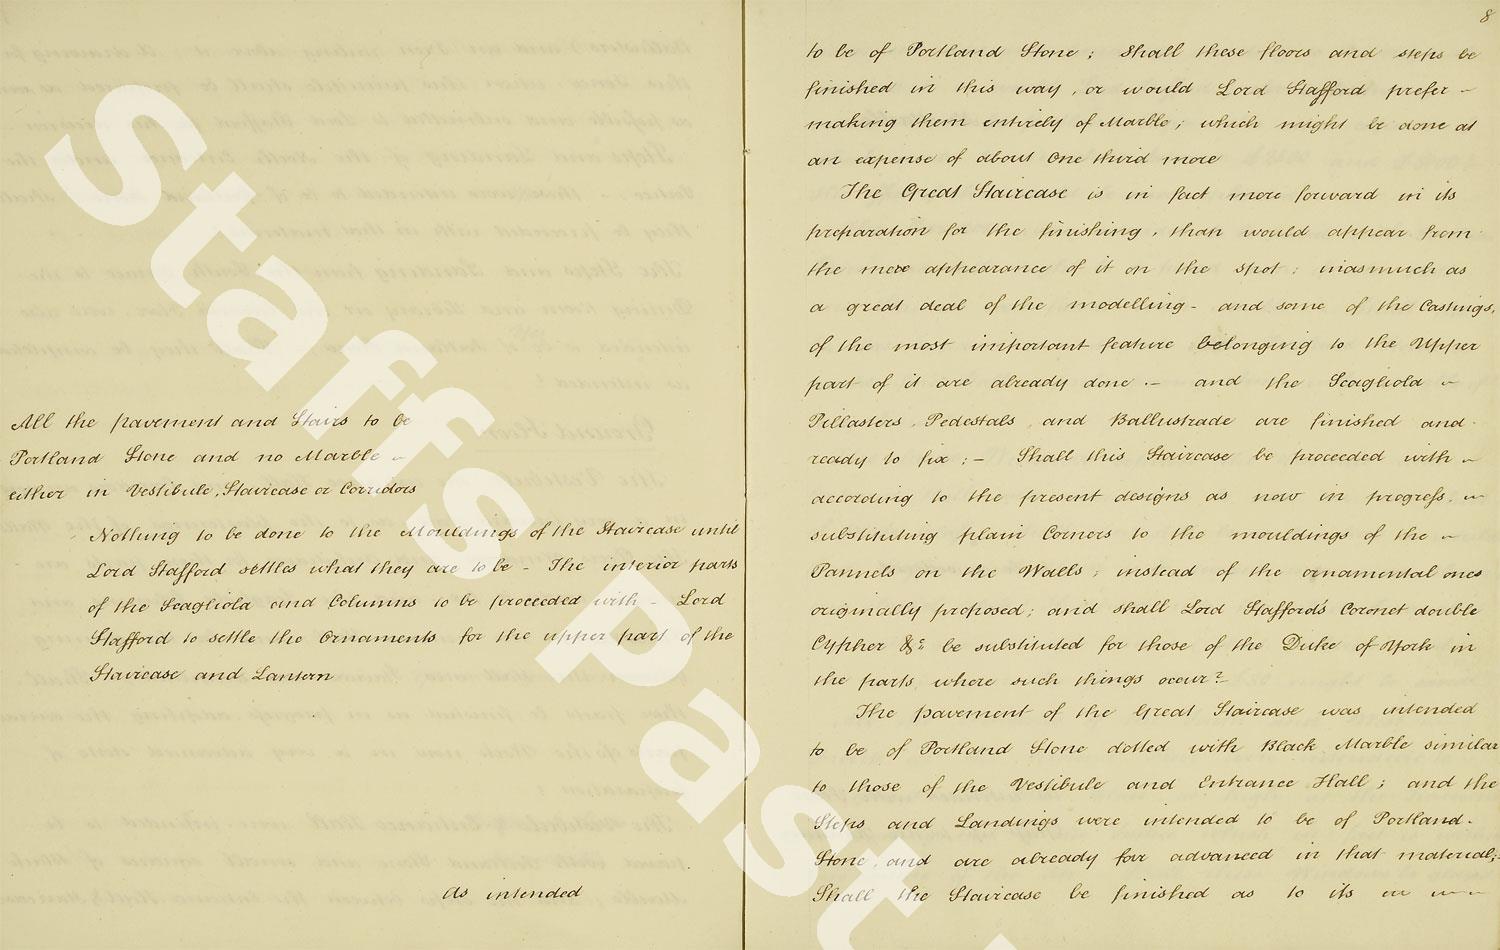 All the pavement and Stairs to be
Portland Stone and no Marble -
either in Vestibule, Staircase or Corridors
Nothing to be done to the Mouldings of the Staircase until
Lord Stafford settles what they are to be - The interior parts
of the Scagliola and Columns to be proceeded with - Lord
Stafford to settle the Ornaments for the upper part of the
Staircase and Lantern
As intended
8
to be of Portland Stone ; Shall these floors and steps be
finished in this way, or would Lord Stafford prefer -
making them entirely of Marble ; which might be done at
an expense of about One third more
The Great Staircase is in fact more forward in its
preparation for the finishing, than would appear from
the mere appearance of it on the spot ; inasmuch as
a great deal of the modelling - and some of the Castings,
of the most important feature belonging to the Upper
part of it are already done .- and the Scagliola -
Pillasters, Pedestals, and Ballustrade are finished and
ready to fix ; - Shall this Staircase be proceeded with -
according to the present designs as now in progress, -
substituting plain Corners to the mouldings of the -
Pannels on the Walls ; instead of the ornamental ones
originally proposed ; and shall Lord Stafford's Coronet double
Cypher &c be substituted for those of the Duke of York in
the parts, where such things occur ? -
The pavement of the Great Staircase was intended
to be of Portland Stone dotted with Black Marble similar
to those of the Vestibule and Entrance Hall ; and the
Steps and Landings were intended to be of Portland -
Stone, and are already far advanced in that material ; -
Shall the Staircase be finished as to its
Staffs Past